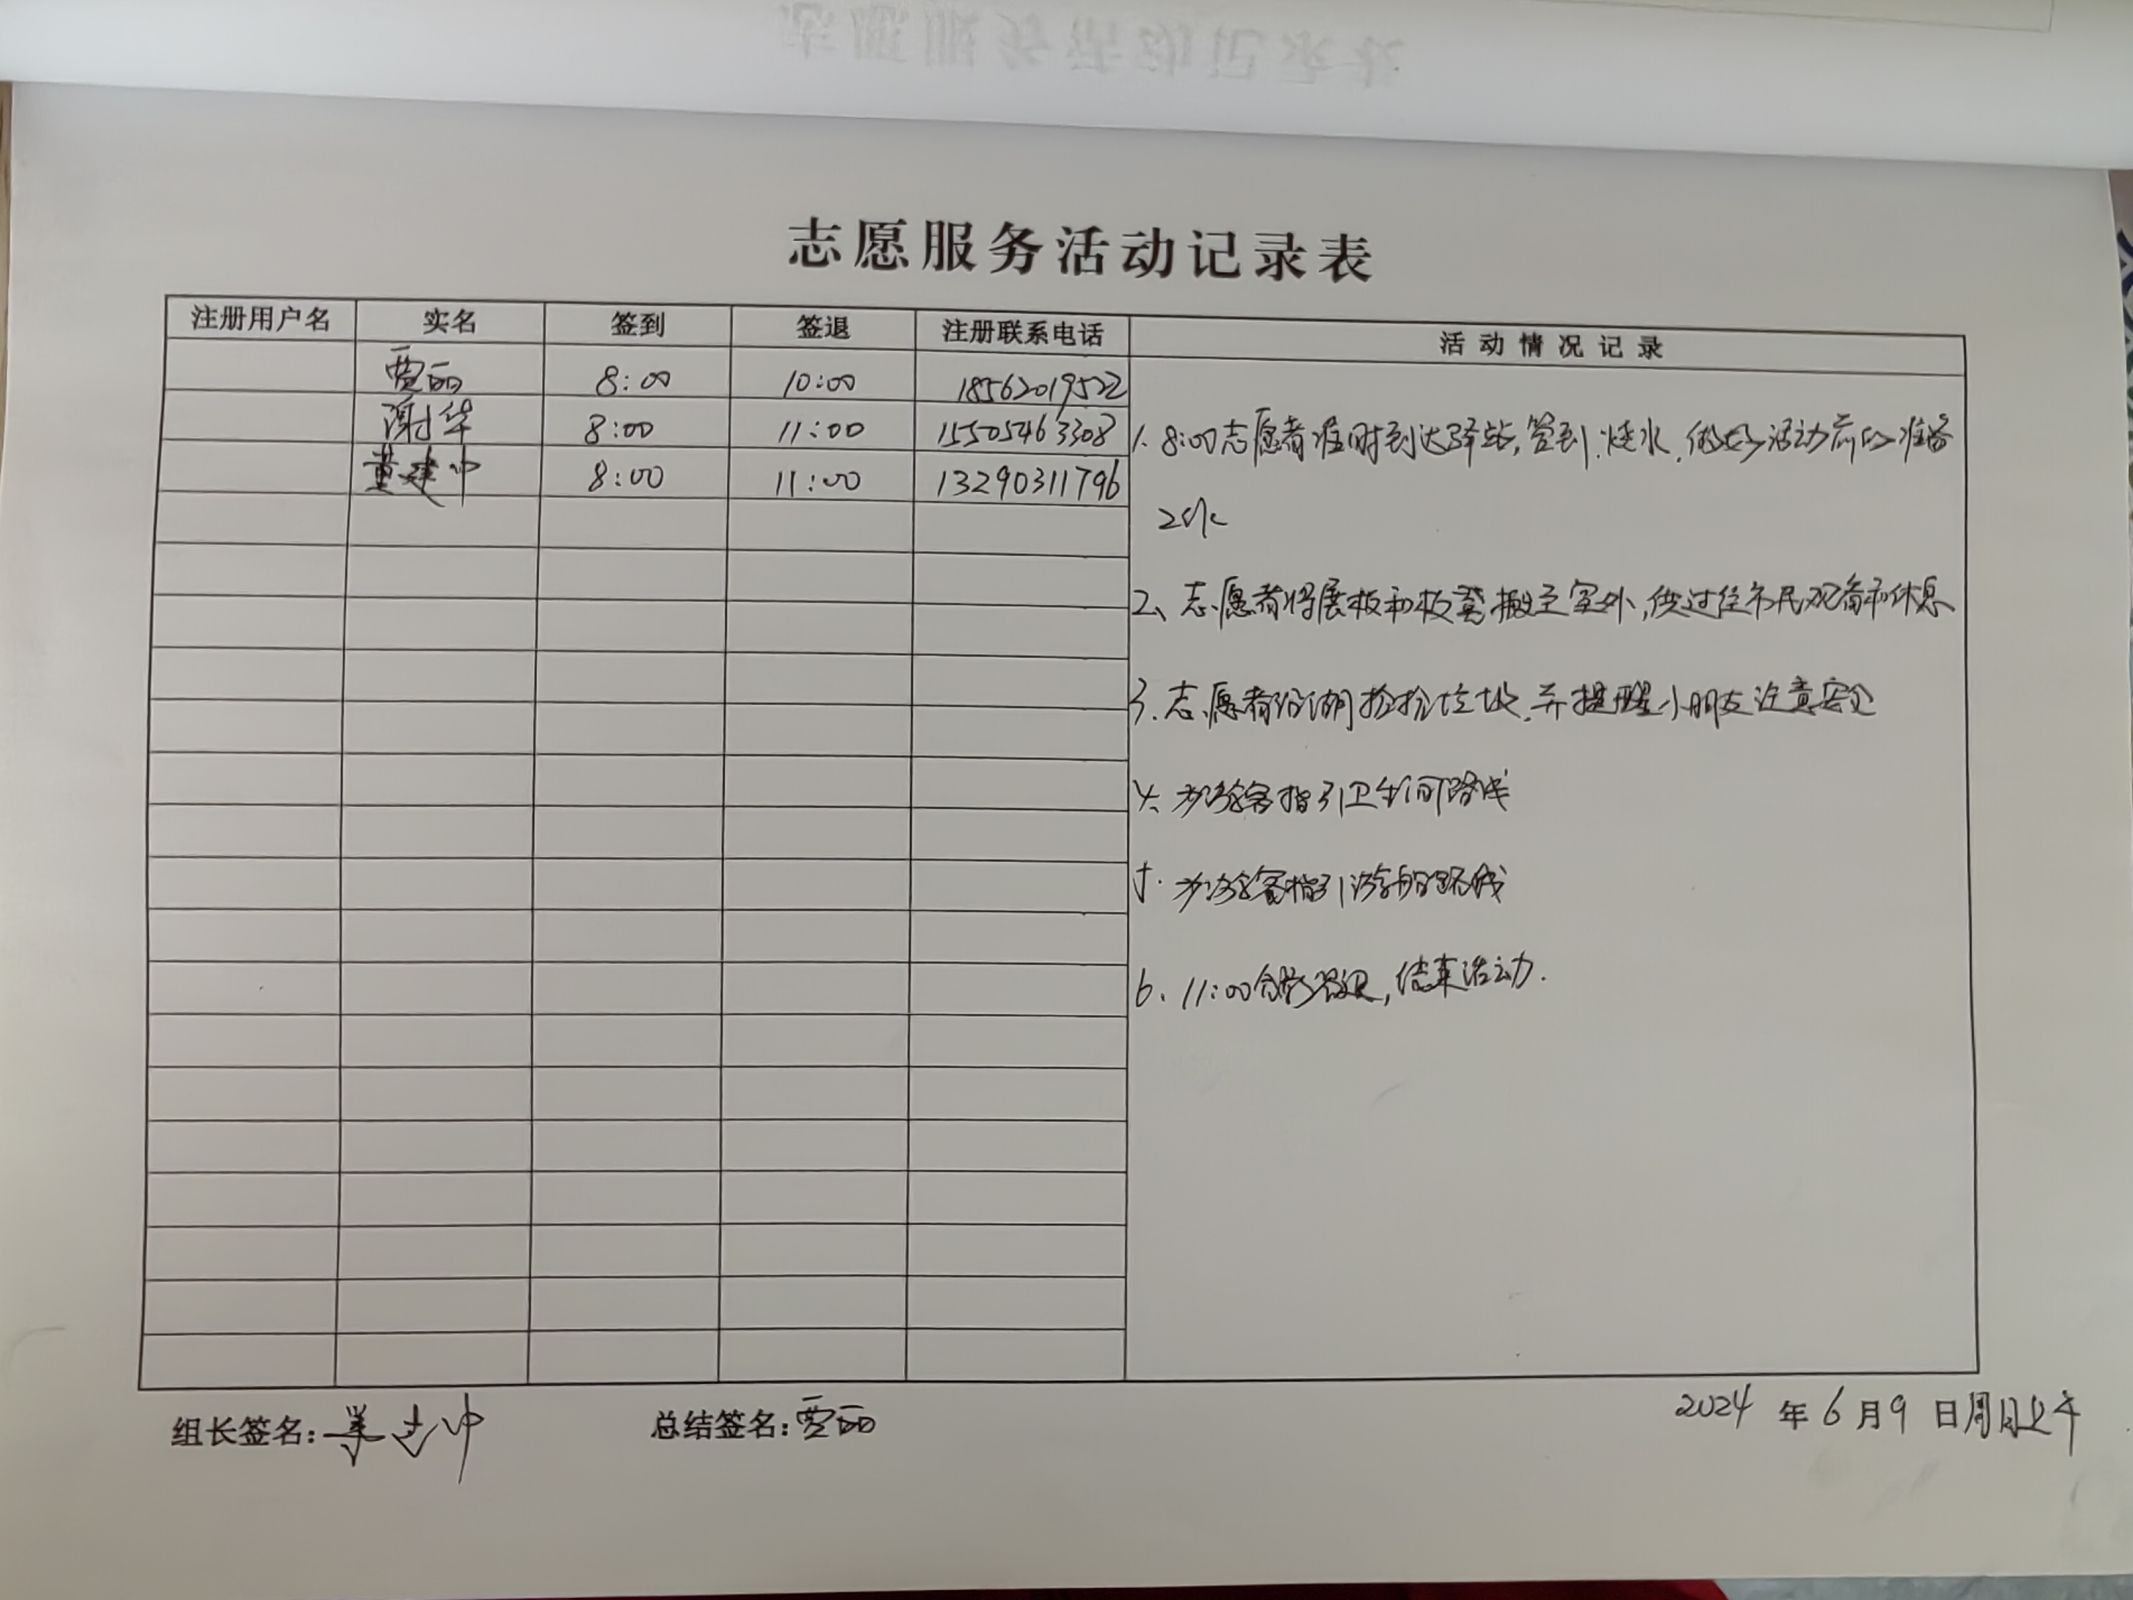 志愿服务活动记录表
注册用户名 实名 签到 签退 注册联系电话 活动情况记录
贾丽 8:00 10:00 18562019522
谢华 8:00 11:00 15505463308
董建中 8:00 11:00 13290311796
1. 8:00志愿者准时到达驿站,签到.烧水.做好活动前的准备
工作
2、志愿者将展板和板凳搬至室外,供过往市民观看和休息
3.志愿者沿湖捡拾垃圾.并提醒小朋友注意安全
4、为游客指引卫生间路线
5.为游客指引游船路线
6、11:00合影签退,结束活动.
组长签名:董建中 总结签名:贾丽 2024年6月9日周日上午